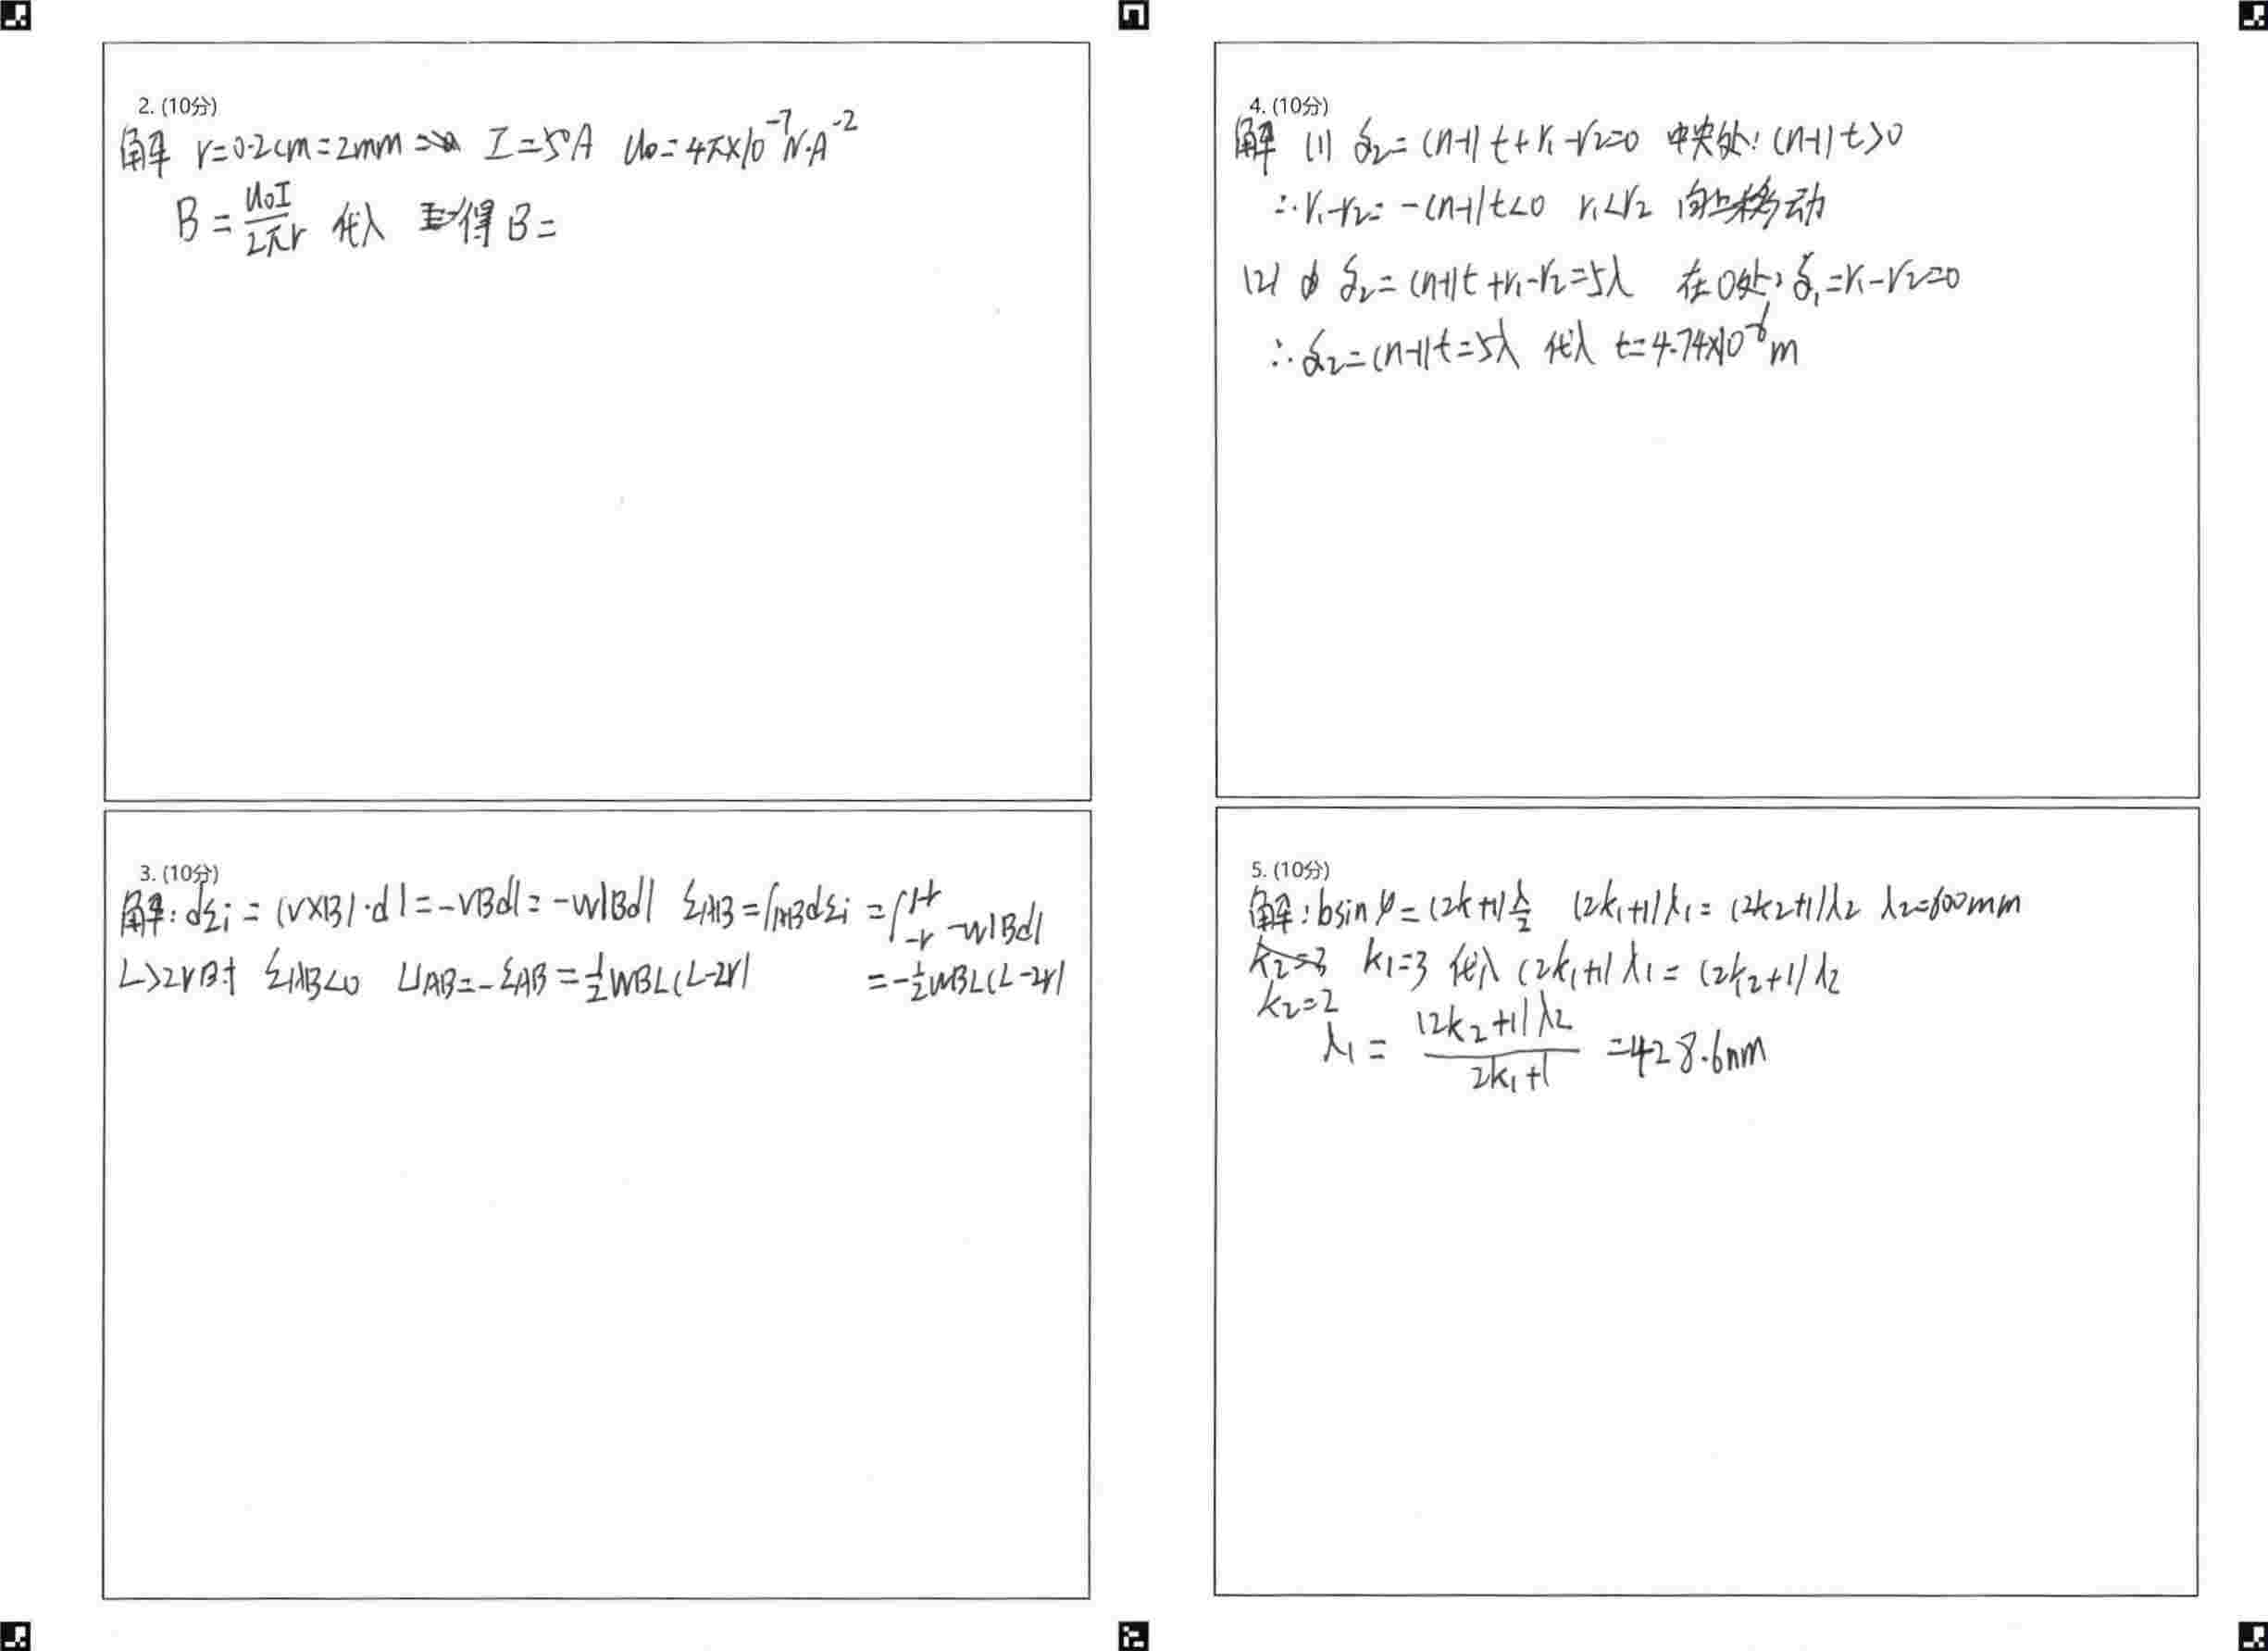 2. (10分)
解 r=0.2cm=2mm I=50A u₀=4π×10⁻⁷N·A⁻²
B=u₀I/2πr 代入 得B=
3. (10分)
解: dεi=(v×B)·dl=-vBdl=-wlBdl εAB=∫AB dεi=∫_{-r}^{l-r} -wlBdl
L>2r时 εAB<0 UAB=-εAB=½wBL(L-2r) =-½wBL(L-2r)
4. (10分)
解 (1) δ₂=(n-1)t+r₁-r₂=0 中央处: (n-1)t>0
∴r₁-r₂=-(n-1)t<0 r₁<r₂ 向上移动
(2) δ₂=(n-1)t+r₁-r₂=5λ 在O处, δ₁=r₁-r₂=0
∴δ₂=(n-1)t=5λ 代入 t=4.74×10⁻⁶m
5. (10分)
解: bsinφ=(2k+1)λ/2 (2k₁+1)λ₁=(2k₂+1)λ₂ λ₂=600mm
k₂=3 k₁=3 代入 (2k₁+1)λ₁=(2k₂+1)λ₂
k₂=2
λ₁=(2k₂+1)λ₂/2k₁+1=428.6nm